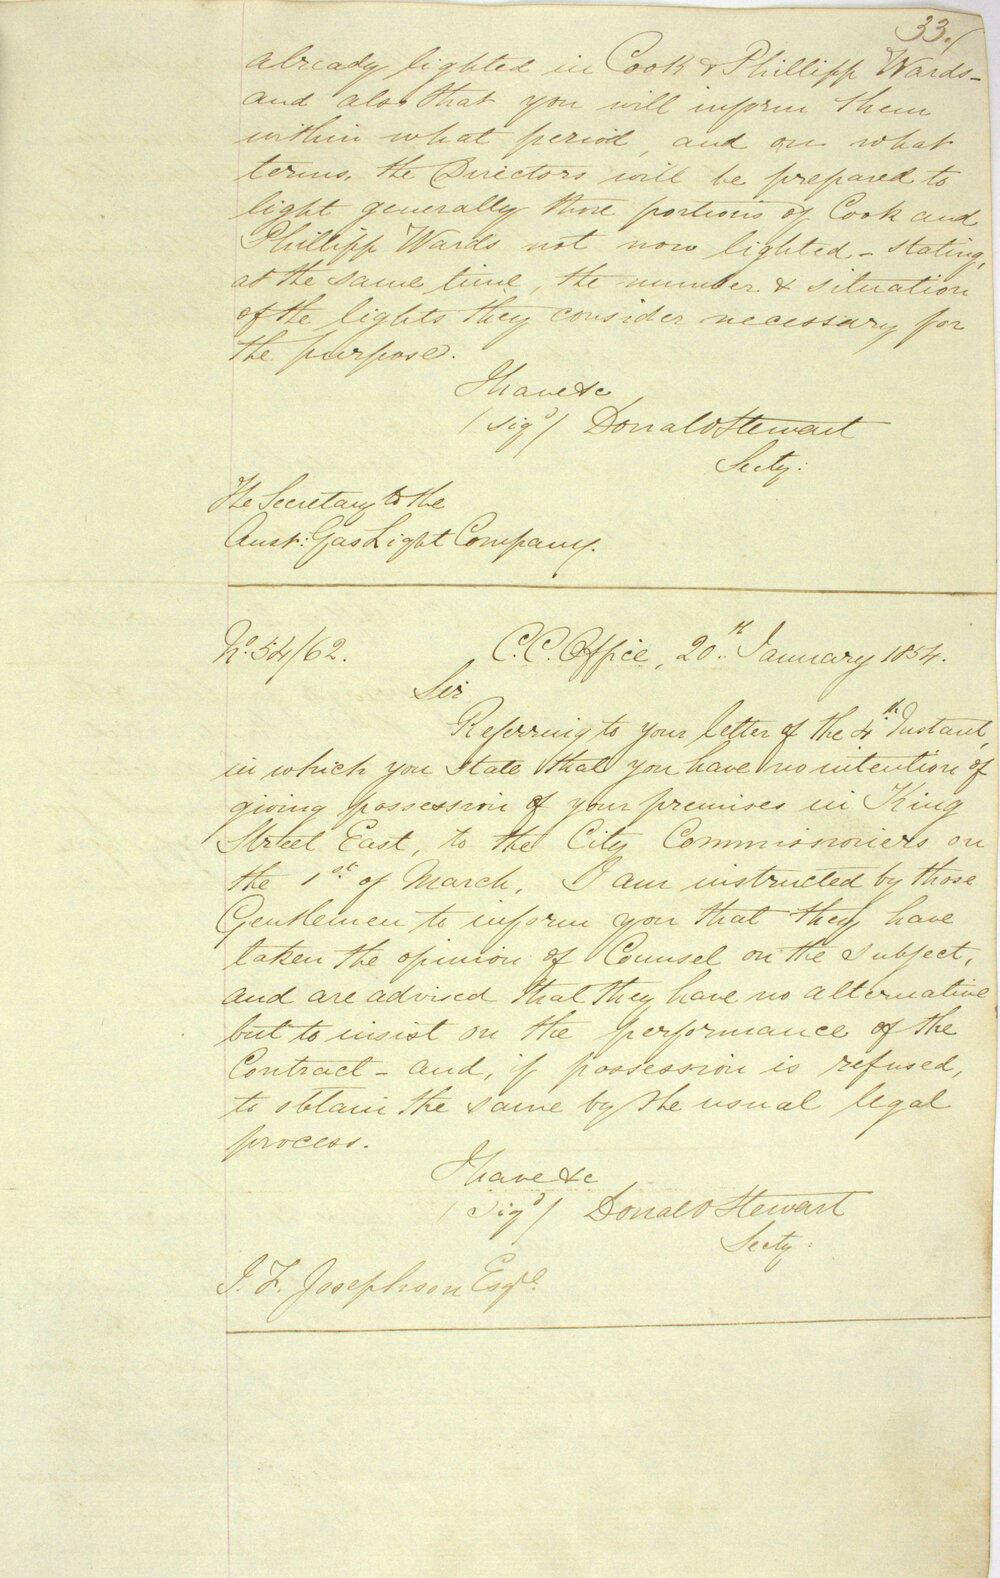 33./
already lighted in Cook & Phillipp Wards-
and also that you will inform them
within what period, and on what
terms, the Directors will be prepared to
light generally those portions of Cook and
Phillipp Wards not now lighted - stating,
at the same time, the number & situation
of the lights they consider necessary for
the purpose.
I have &c
/ sigd / Donald Stewart
Secty:
The Secretary to the
Aust: Gas Light Company.
No. 54/62.
C.C. Office, 20th January 1854.
Sir
Referring to your letter of the 4th Instant,
in which you state that you have no intention of
giving possession of your premises in King
Street East, to the City Commissioners on
the 1st of March. I am instructed by those
Gentlemen to inform you that they have
taken the opinion of Counsel on the subject,
and are advised that they have no alternative
but to insist on the performance of the
Contract - and, if possession is refused,
to obtain the same by the usual legal
process.
I have &c
/ sigd / Donald Stewart
Secty:
J. F. Josephson Esqre.